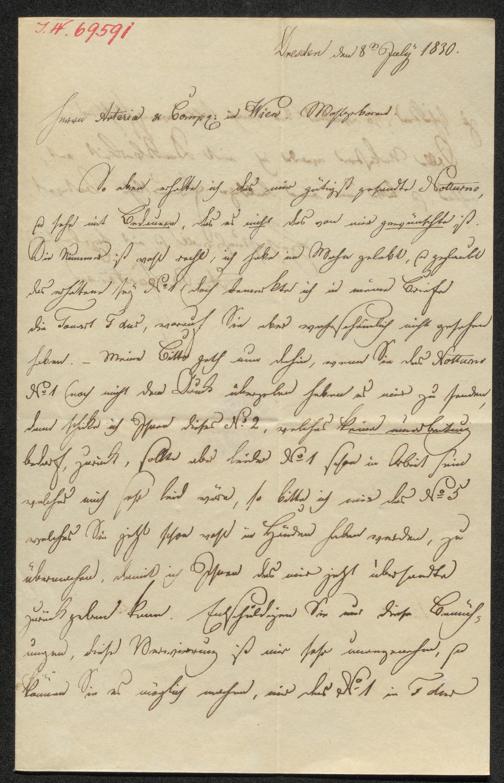 I.N. 69591
Dresden den 8ᵗ July 1830.
Herrn Artaria & Comp: in Wien Wohlgeboren
So eben erhalte ich das mir gütigst gesandte Notturno,
u sehe mit Bedauern, das es nicht das von mir gewünschte ist.
Die Nummer ist wohl recht, ich habe im Wahn gelebt, u geglaubt
das erhaltene sey No 1 (doch bemerkte ich in meine Briefe
die Tonart F dur, worauf Sie aber wahrscheinlich nicht gesehen
haben. – Meine Bitte geth nun dahin, wenn Sie das Notturno
No 1 (noch nicht dem Druk übergeben haben es mir zu senden,
dann schike ich Ihnen dieses No 2, welches keine umarbeitung
bedarf, zurük, sollte aber leider No 1 schon in Arbeit sein
welches mich sehr leid wäre, so bitte ich mir das No 3
welches Sie jetzt schon wohl in Händen haben werden, zu
übermachen, damit ich Ihnen das mir jetzt übersandte
zurük geben kann. Entschuldigen Sie nur diese Bemüh-
ungen, diese Verwirrung ist mir sehr unangenehm, u
können Sie es möglich machen, mir das No 1 in F dur